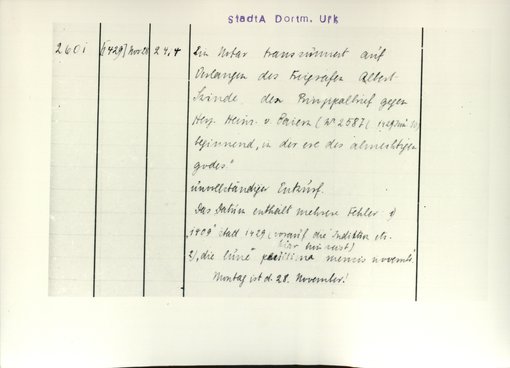 StadtA Dortm. Urk
2601 [1429] Nov. 28 24,4 Ein Notar transsumiert auf
Verlangen des Freigrafen Albert
Swinde den Prinzipalbrief gegen
Herz. Heinr. v. Baiern (N° 2587 1429
beginnend „in der ere des almechtigen
godes"
unvollständiger Entwurf.
Das Datum enthält mehrere Fehler 1)
„1409" statt 1429 (worauf die Indiktion etc.
klar hinweist)
2) „die lune" mensis novembr."
Montag ist d. 28. November!